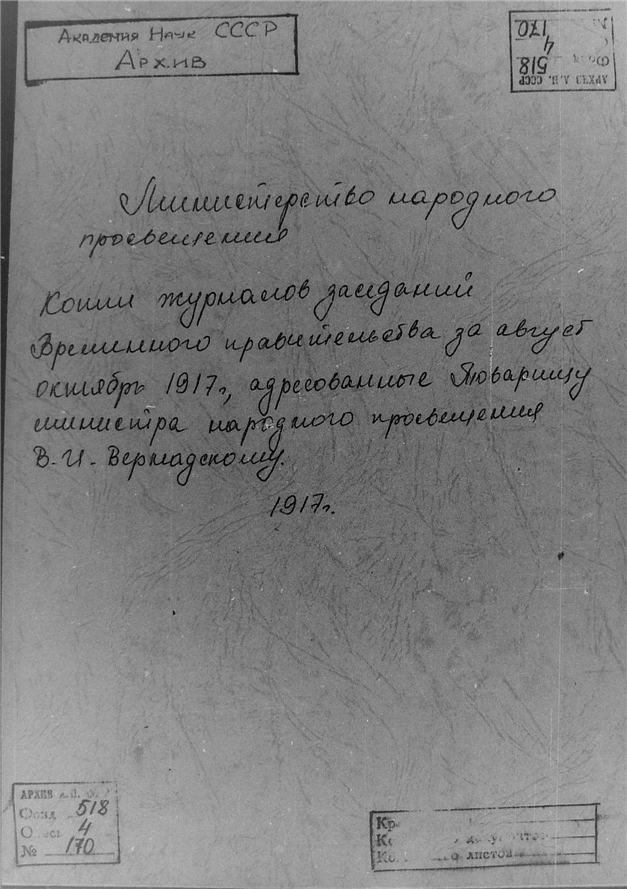 Академия Наук СССР
Архив
АРХИВ А.Н. СССР
Фонд 518
4
170
Министерство народного
просвещения
Копии журналов заседаний
Временного правительства за август
октябрь 1917г., адресованные Товарищу
министра народного просвещения
В.И. Вернадскому.
1917г.
АРХИВ А.Н.
Фонд 518
Опись 4
№ 170
листов